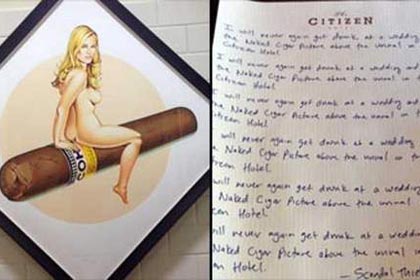 CITIZEN
I will never again get drunk at a wedding
the Naked Cigar Picture above the urinal
Citizen Hotel.
I will never again get drunk at a wedding and
the Naked Cigar Picture above the urinal in
Citizen Hotel.
I will never again get drunk at a wedding
the Naked Cigar Picture above the urinal in the
Citizen Hotel.
will never again get drunk at a wedding
Naked Cigar Picture above the urinal in the
Hotel.
will never again get drunk at a wedding
Naked Cigar Picture above the urinal in
Hotel
will never again get drunk at a wedding
Naked Cigar Picture above the urinal in
Hotel.